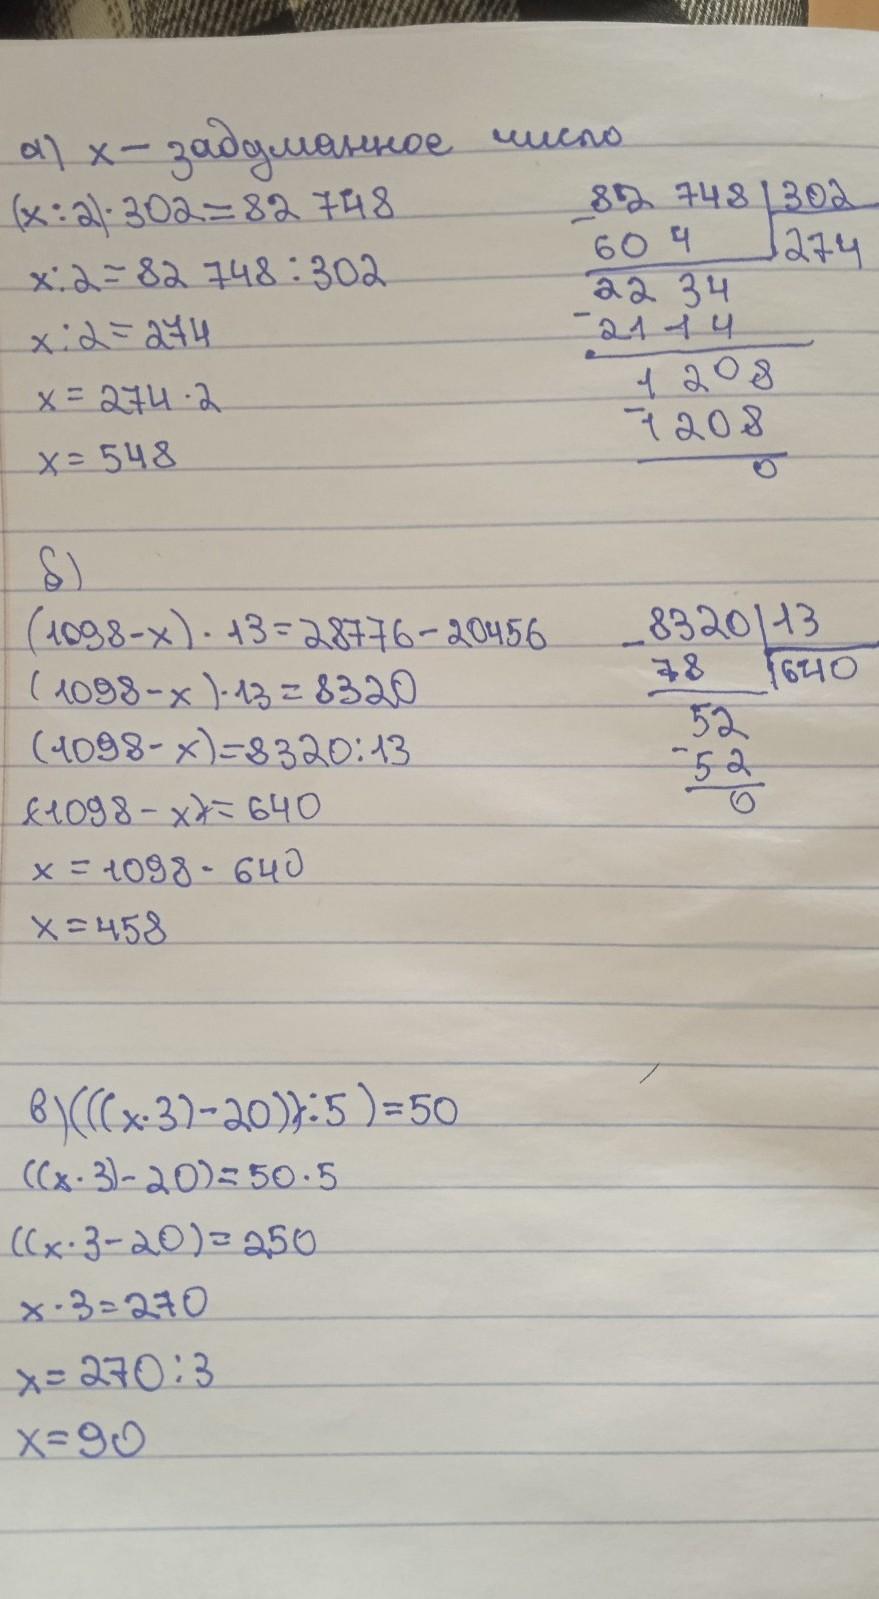 а) х – задуманное число
(х:2)·302=82 748
х:2=82 748:302
х:2=274
х=274·2
х=548
82 748|302
– 604 |274
2234
– 2114
1208
– 1208
0
б)
(1098-х)·13=28776-20456
(1098-х)·13=8320
(1098-х)=8320:13
(1098-х)=640
х=1098-640
х=458
– 8320|13
78 |640
52
– 52
0
в)(((х·3)-20)):5)=50
((х·3)-20)=50·5
((х·3-20)=250
х·3=270
х=270:3
х=90